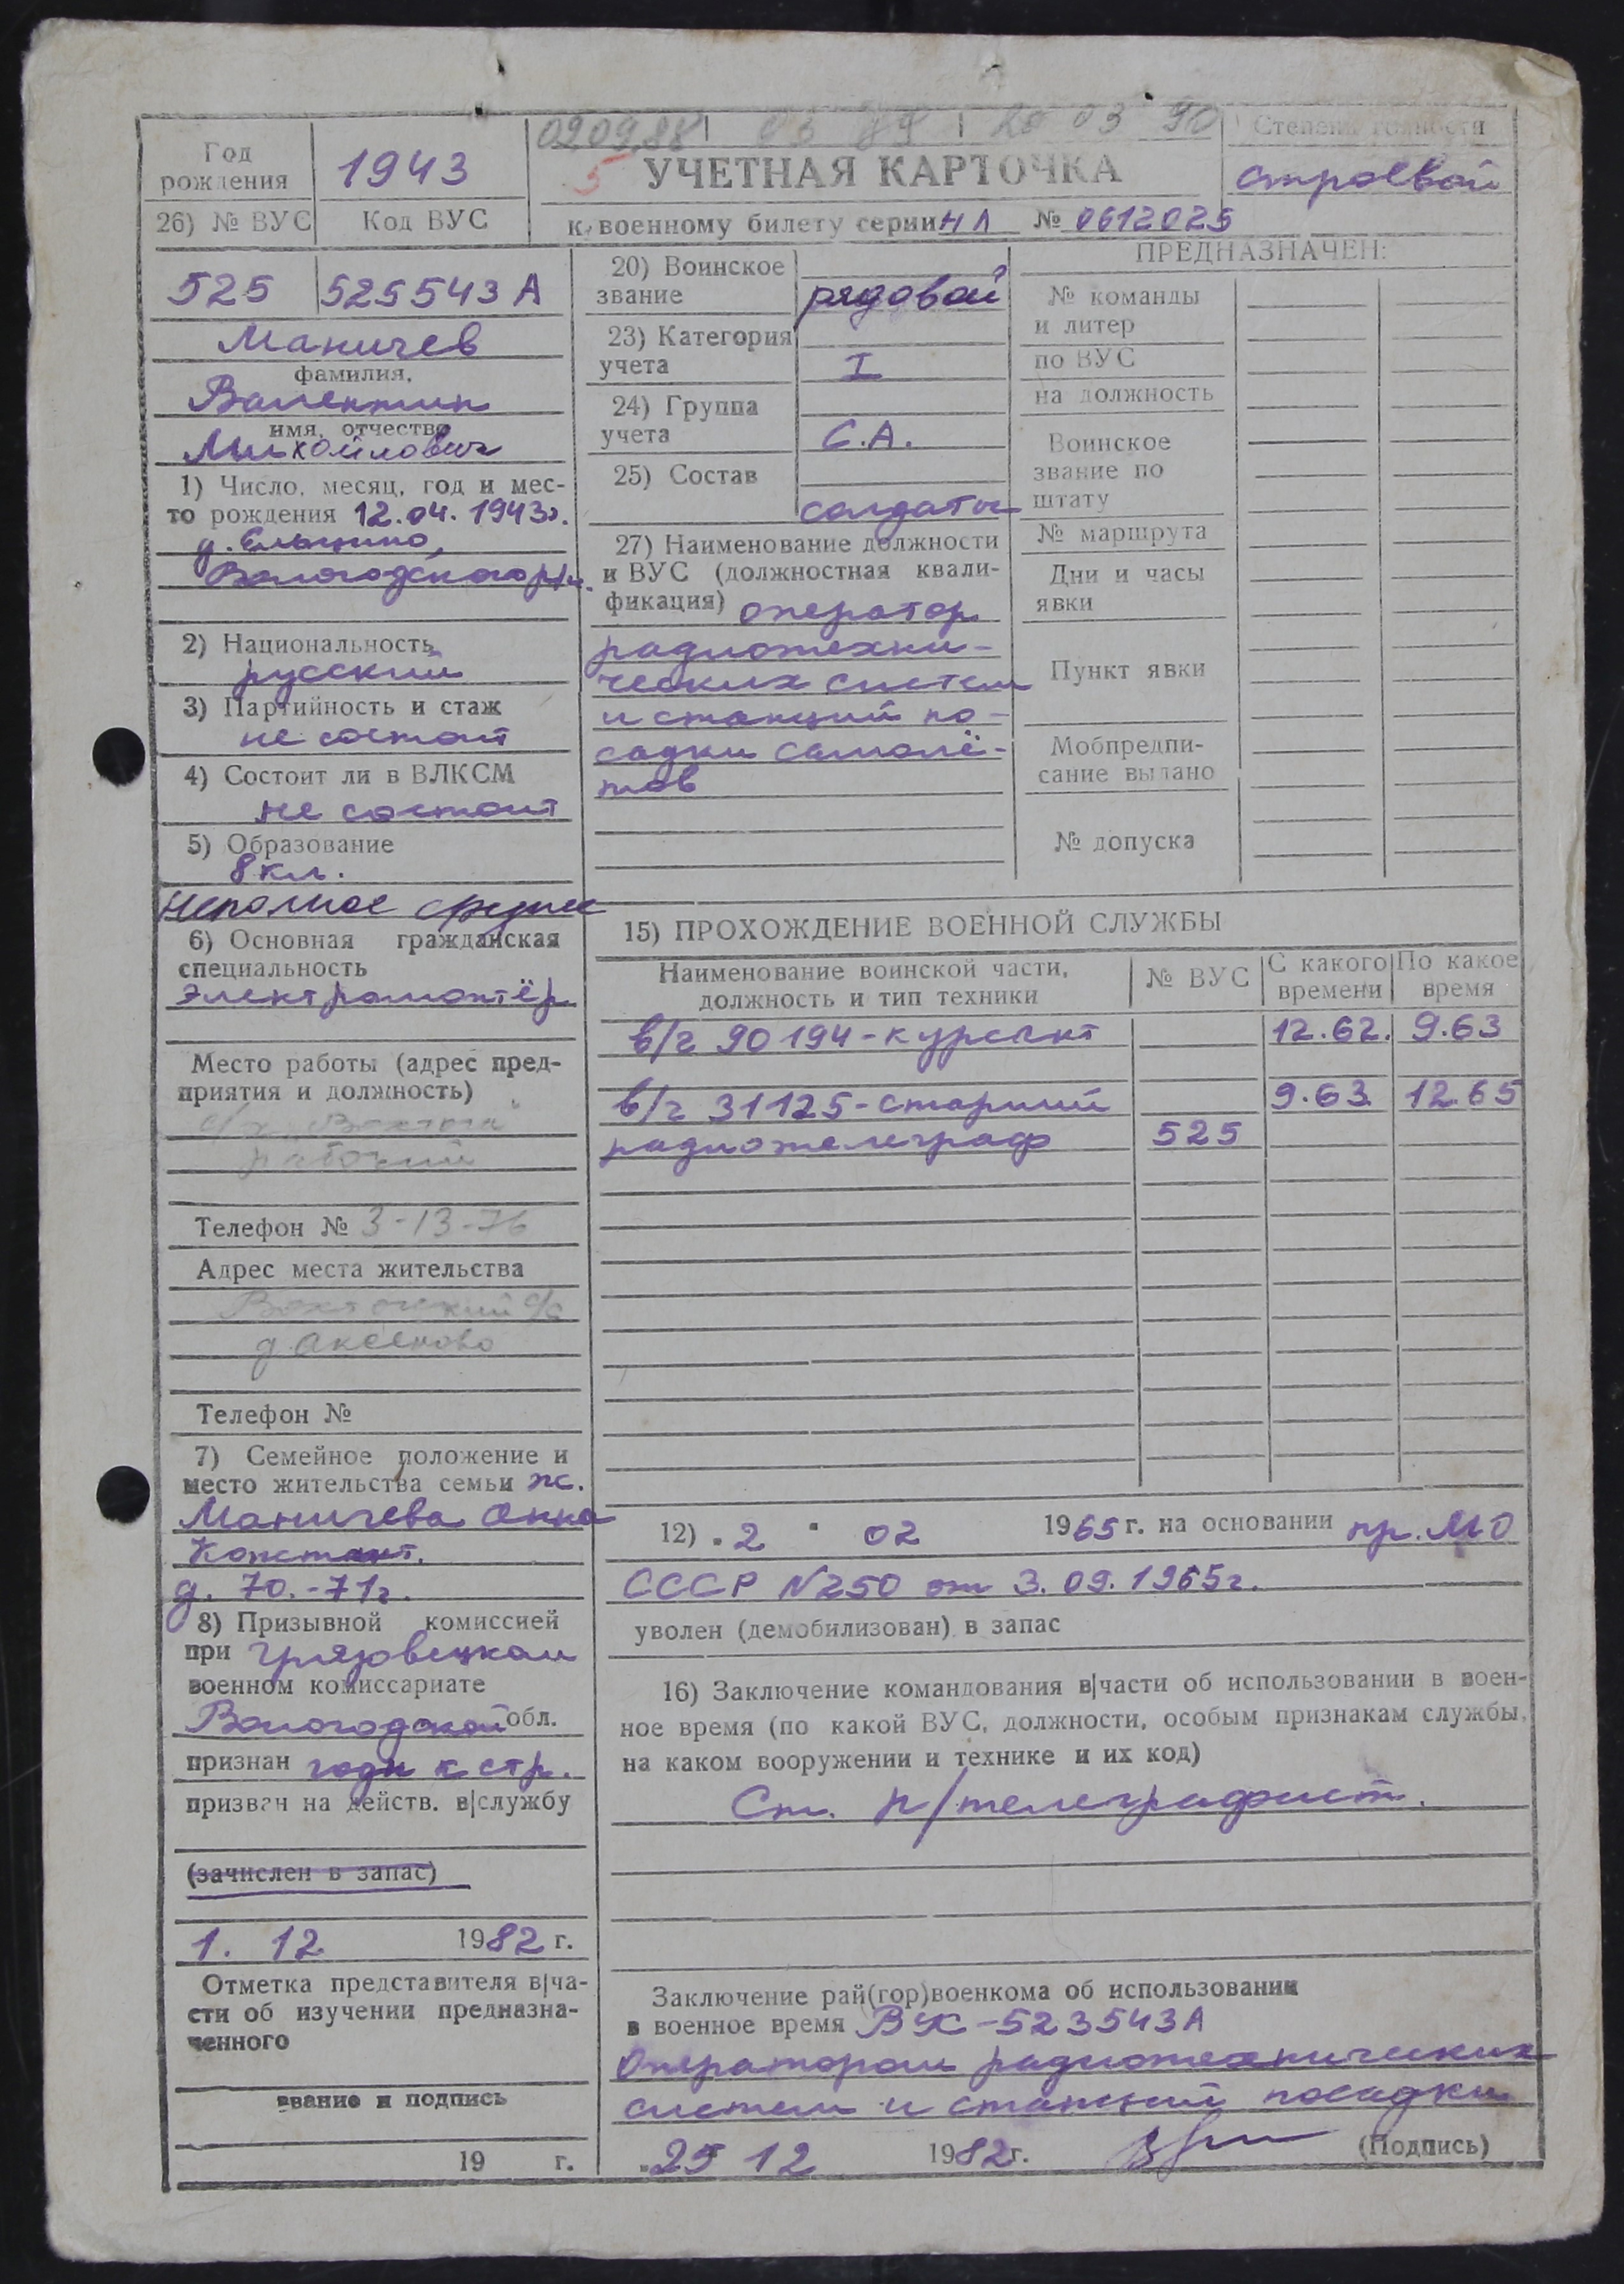 02.09.88 03 89 20 03 90
Степень годности
Год
рождения
1943
5 УЧЕТНАЯ КАРТОЧКА
строевой
26) № ВУС Код ВУС
к военному билету серии НЛ № 0612025
525 525543 А
Маничев
фамилия,
Валентин
имя, отчество
Михайлович
1) Число, месяц, год и мес-
то рождения 12.04.1943г.
Вологодского р/н.
2) Национальность
русский
3) Партийность и стаж
не состоит
4) Состоит ли в ВЛКСМ
не состоит
5) Образование
8 кл.
Неполное среднее
6) Основная гражданская
специальность
Электромонтёр
Место работы (адрес пред-
приятия и должность)
рабочий
Телефон № 3-13-76
Адрес места жительства
д. Аксеново
Телефон №
7) Семейное положение и
место жительства семьи ж.
Маничева Анна
Констант.
д. 70.-71г.
8) Призывной комиссией
при Грязовецком
военном комиссариате
Вологодской обл.
признан годн к стр.
призван на действ. в|службу
(зачислен в запас)
1. 12 1982 г.
Отметка представителя в|ча-
сти об изучении предназна-
ченного
звание и подпись
19 г.
20) Воинское
звание рядовой
23) Категория
учета I
24) Группа
учета С.А.
25) Состав
солдаты
27) Наименование должности
и ВУС (должностная квали-
фикация) оператор
радиотехни-
ческих систем
и станций по-
садки самолё-
тов
ПРЕДНАЗНАЧЕН:
№ команды
и литер
по ВУС
на должность
Воинское
звание по
штату
№ маршрута
Дни и часы
явки
Пункт явки
Мобпредпи-
сание выдано
№ допуска
15) ПРОХОЖДЕНИЕ ВОЕННОЙ СЛУЖБЫ
Наименование воинской части,
должность и тип техники
№ ВУС
С какого
времени
По какое
время
в/ч 90194-курсант 12.62. 9.63
в/ч 31125-старший 9.63 12.65
радиотелеграф 525
12) „2" 02 1965 г. на основании пр. МО
СССР №250 от 3.09.1965г.
уволен (демобилизован) в запас
16) Заключение командования в|части об использовании в воен-
ное время (по какой ВУС, должности, особым признакам службы,
на каком вооружении и технике и их код)
Ст. р/телеграфист.
Заключение рай(гор)военкома об использовании
в военное время ВУС-523543А
Оператором радиотехнических
систем и станций посадки
„25 12 1982г. (Подпись)